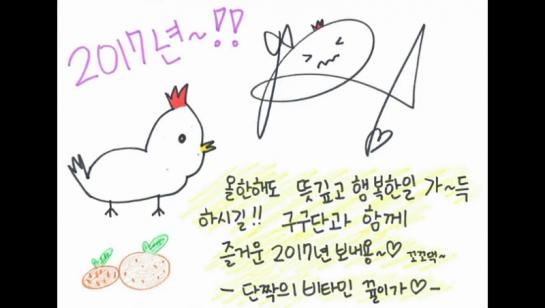 2017년~!!
올한해도 뜻깊고 행복한일 가~득
하시길!! 구구단과 함께
즐거운 2017년 보내용~♡ 꼬꼬댁~
- 단짝의 비타민 뀰이가♡ -